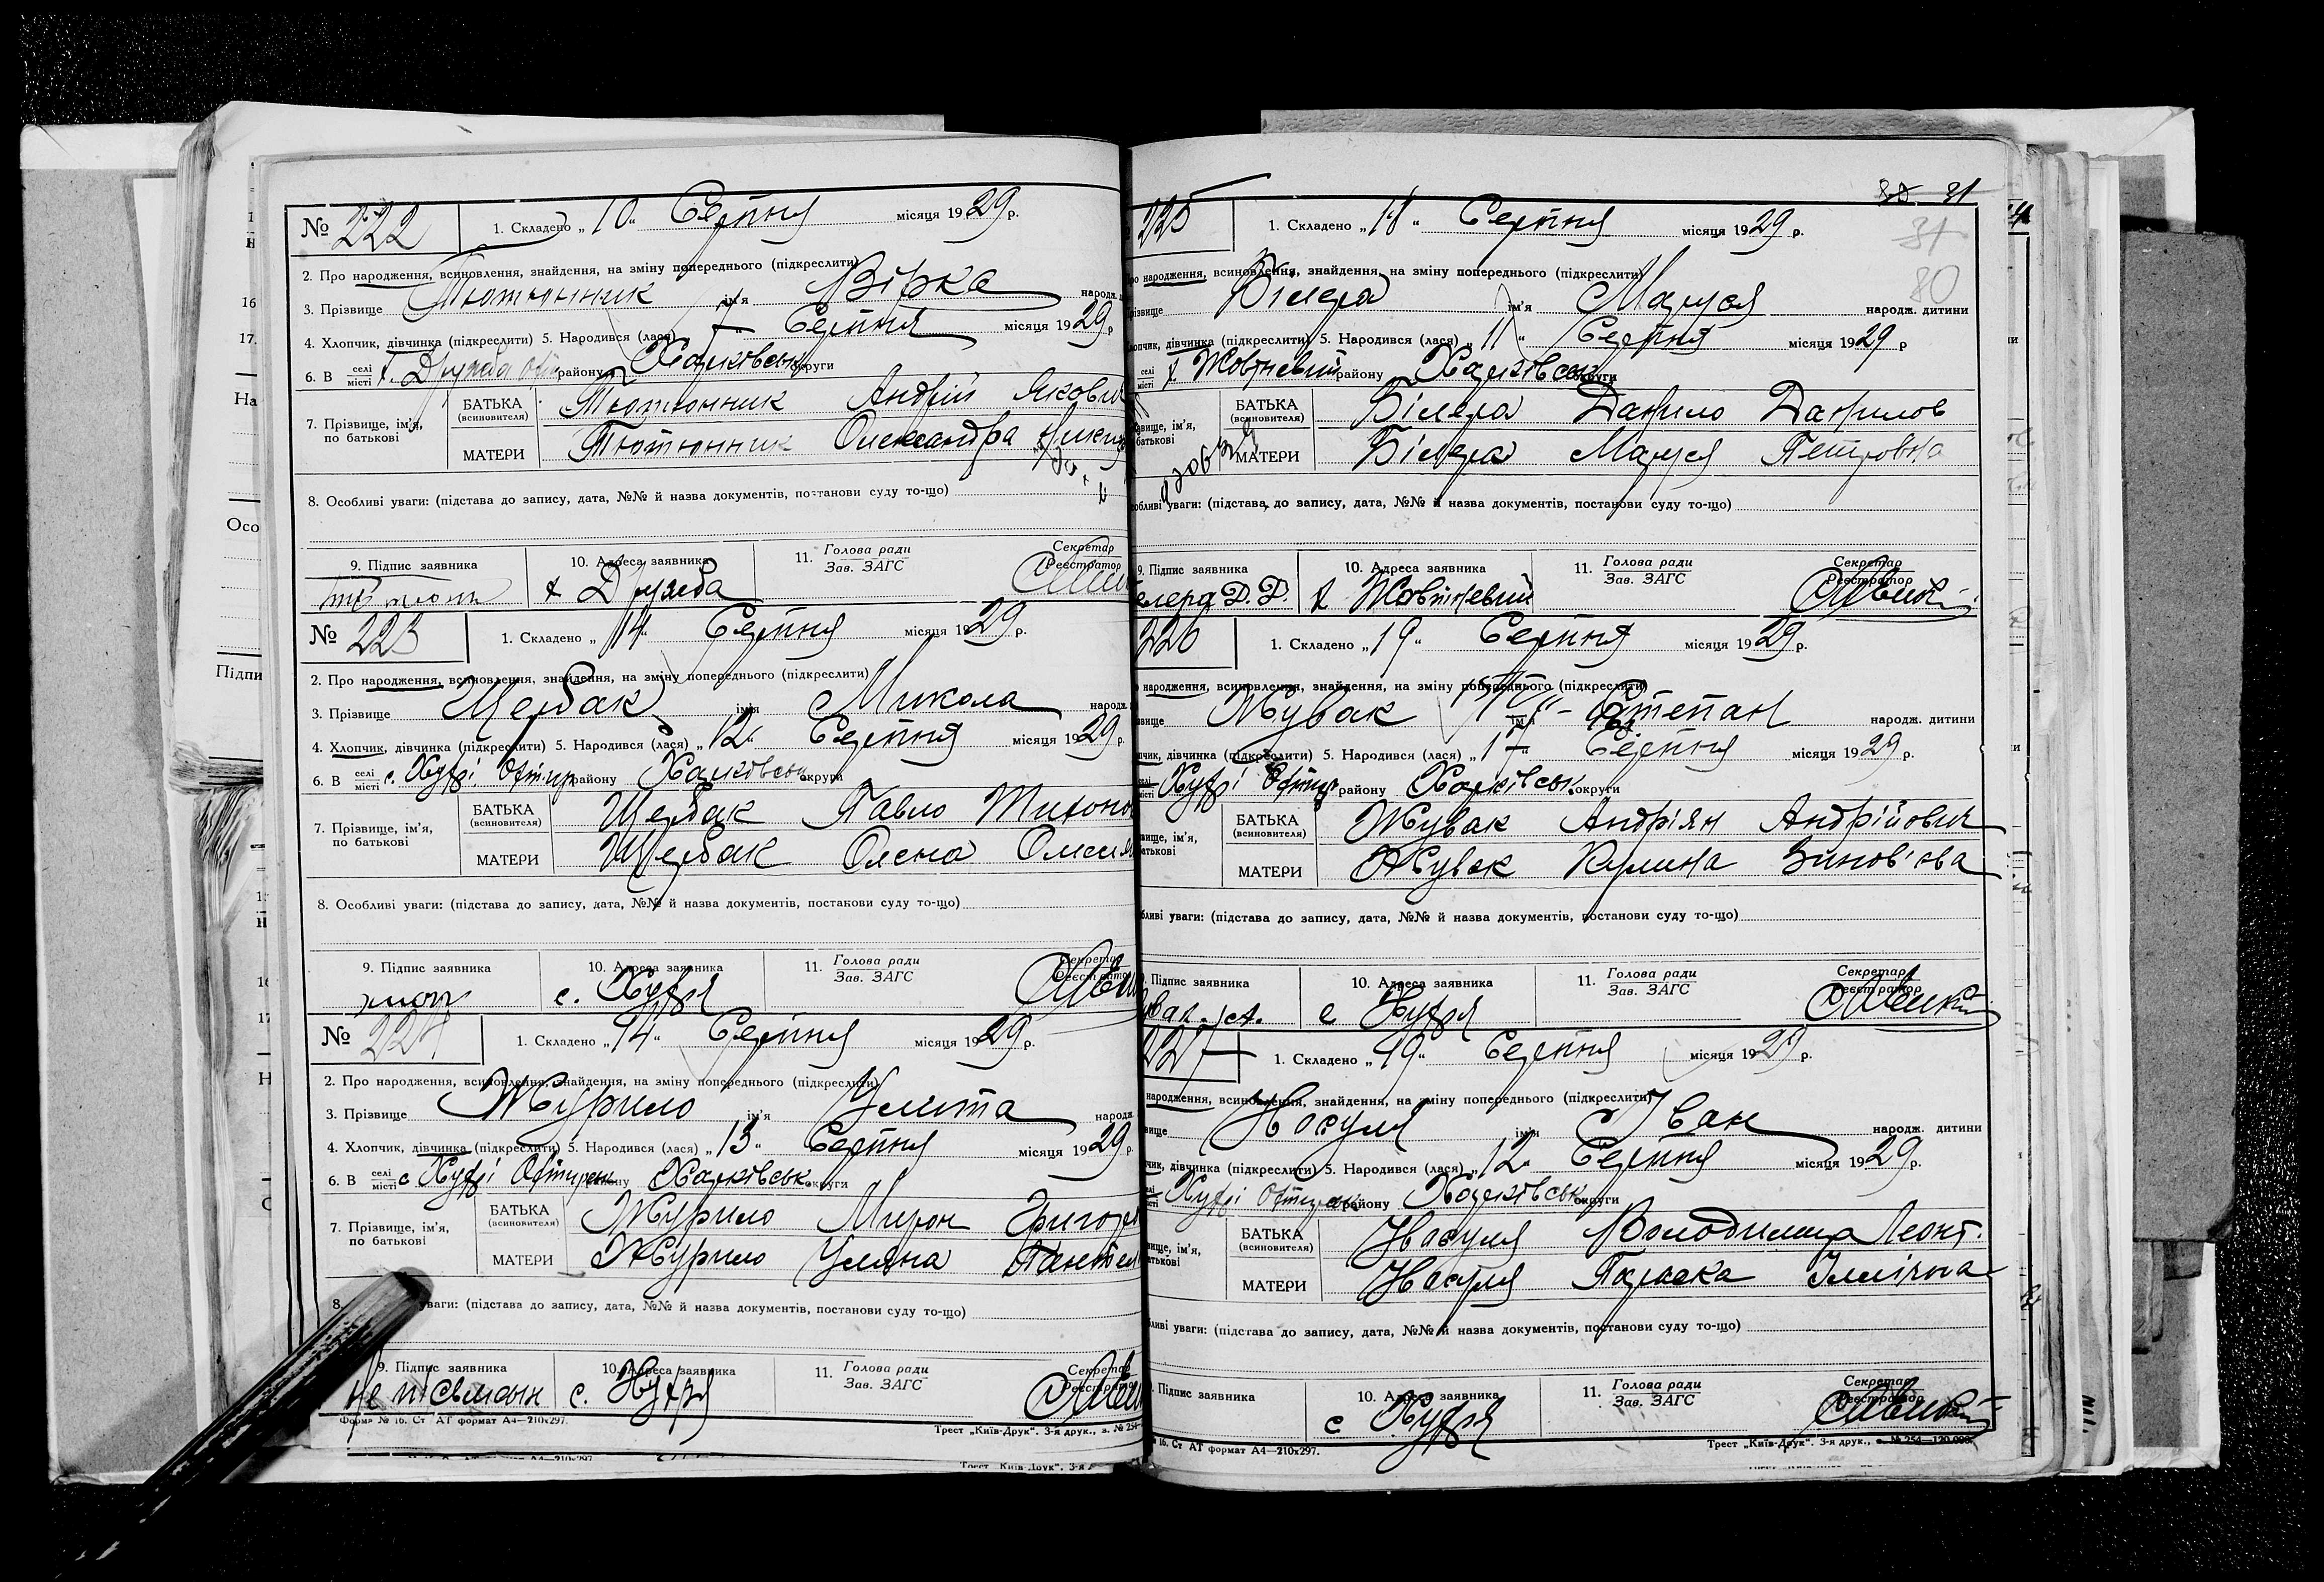 № 222
1. Складено „10“ Серпня місяця 1929 р.
2. Про народження, всиновлення, знайдення, на зміну попереднього (підкреслити)
3. Прізвище Тютюнник ім'я Вірка народж.
4. Хлопчик, дівчинка (підкреслити) 5. Народився (лася) „7“ Серпня місяця 1929 р
6. В селі місті х. Дружба району Харківськ округи
7. Прізвище, ім'я, по батькові
БАТЬКА (всиновителя) Тютюнник Андрій Якович
МАТЕРИ Тютюнник Олександра
8. Особливі уваги: (підстава до запису, дата, №№ й назва документів, постанови суду то-що)
9. Підпис заявника
10. Адреса заявника х Дружба
11. Голова ради Зав. ЗАГС
Секретар Реєстратор
№ 223
1. Складено „14“ Серпня місяця 1929 р.
2. Про народження, всиновлення, знайдення, на зміну попереднього (підкреслити)
3. Прізвище Щербак ім'я Микола народж.
4. Хлопчик, дівчинка (підкреслити) 5. Народився (лася) „12“ Серпня місяця 1929 р.
6. В селі місті с. Хухрі Охтир району Харківськ округи
7. Прізвище, ім'я, по батькові
БАТЬКА (всиновителя) Щербак Павло Тихоно
МАТЕРИ Щербак Олена
8. Особливі уваги: (підстава до запису, дата, №№ й назва документів, постанови суду то-що)
9. Підпис заявника
10. Адреса заявника с. Хухря
11. Голова ради Зав. ЗАГС
Секретар Реєстратор
№ 224
1. Складено „14“ Серпня місяця 1929 р.
2. Про народження, всиновлення, знайдення, на зміну попереднього (підкреслити)
3. Прізвище Журило ім'я Улита народж.
4. Хлопчик, дівчинка (підкреслити) 5. Народився (лася) „13“ Серпня місяця 1929 р.
6. В селі місті с Хухрі Охтирськ Харківськ округи
7. Прізвище, ім'я, по батькові
БАТЬКА (всиновителя) Журило Мирон Григоро
МАТЕРИ Журило Уляна Пантел
8. уваги: (підстава до запису, дата, №№ й назва документів, постанови суду то-що)
9. Підпис заявника Не письменн
10. Адреса заявника с. Хухря
11. Голова ради Зав. ЗАГС
Секретар Реєстратор
Форма № 16. Ст АТ формат А4—210х297.
Трест „Київ-Друк“. 3-я друк., з. № 254
31
80
225
1. Складено „18“ Серпня місяця 1929 р.
народження, всиновлення, знайдення, на зміну попереднього (підкреслити)
Білера ім'я Маруся народж. дитини
дівчинка (підкреслити) 5. Народився (лася) „11“ Серпня місяця 1929 р
селі місті х Жовтневий району Харківськ округи
БАТЬКА (всиновителя) Білера Данило Данилов
МАТЕРИ Білера Маруся Петровна
уваги: (підстава до запису, дата, №№ й назва документів, постанови суду то-що)
9. Підпис заявника елера Д. Д.
10. Адреса заявника х Жовтневий
11. Голова ради Зав. ЗАГС
Секретар Реєстратор
226
1. Складено „19“ Серпня місяця 1929 р.
народження, всиновлення, знайдення, на зміну попереднього (підкреслити)
Жувак ім'я Степан народж. дитини
дівчинка (підкреслити) 5. Народився (лася) „17“ Серпня місяця 1929 р.
Хухрі Охтир району Харківськ. округи
БАТЬКА (всиновителя) Жувак Андріян Андрійович
МАТЕРИ Жувак Кулина Зинов'єва
уваги: (підстава до запису, дата, №№ й назва документів, постанови суду то-що)
Підпис заявника
10. Адреса заявника с Хухря
11. Голова ради Зав. ЗАГС
Секретар Реєстратор
227
1. Складено „19“ Серпня місяця 1929 р.
народження, всиновлення, знайдення, на зміну попереднього (підкреслити)
Носуля ім'я Іван народж. дитини
дівчинка (підкреслити) 5. Народився (лася) „12“ Серпня місяця 1929 р.
Хухрі Охтирськ району Харківськ округи
БАТЬКА (всиновителя) Носуля Володимир Леонт.
МАТЕРИ Носуля Параска Іллічна
уваги: (підстава до запису, дата, №№ й назва документів, постанови суду то-що)
Підпис заявника
10. Адреса заявника с Хухря
11. Голова ради Зав. ЗАГС
Секретар Реєстратор
16. Ст АТ формат А4—210х297.
Трест „Київ-Друк“. 3-я друк., з. № 254—120.000.